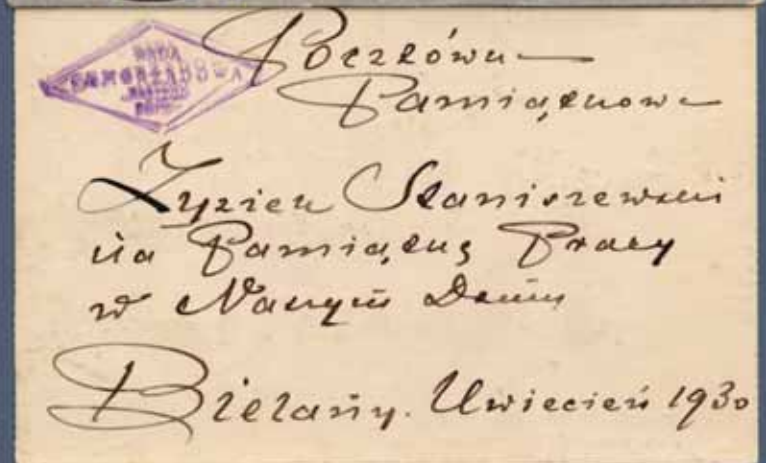 RADA
SAMORZĄDOWA
„NASZEGO
DOMU”
Pocztówka
Pamiątkowa
Zyziek Staniszewski
na Pamiątkę Pracy
w Naszym Domu
Bielany. Kwiecień 1930